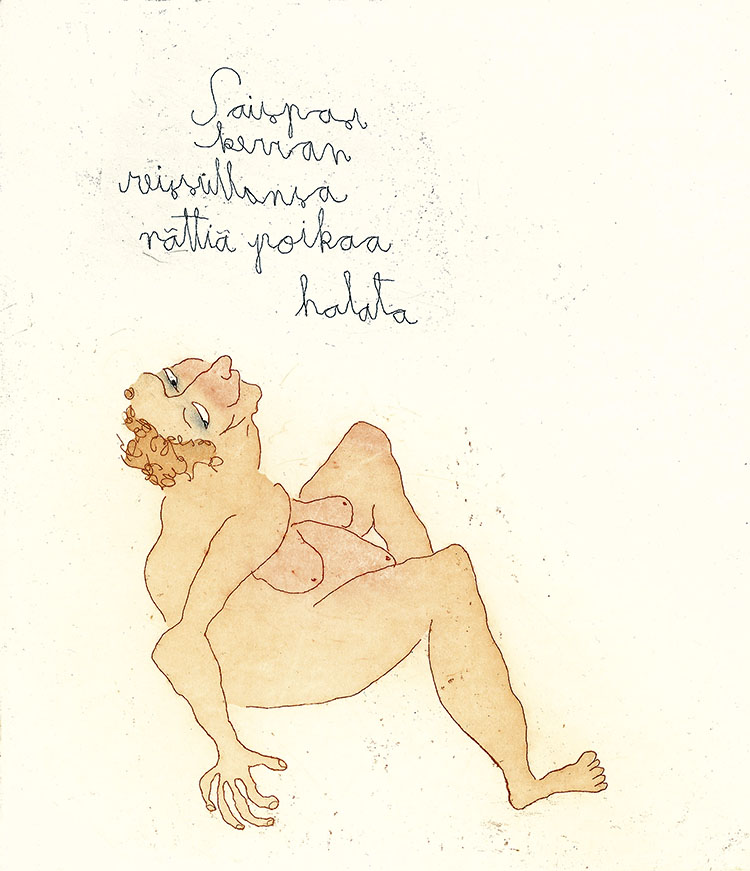 Saispasi
kerran
reissullansa
nättiä poikaa
halata